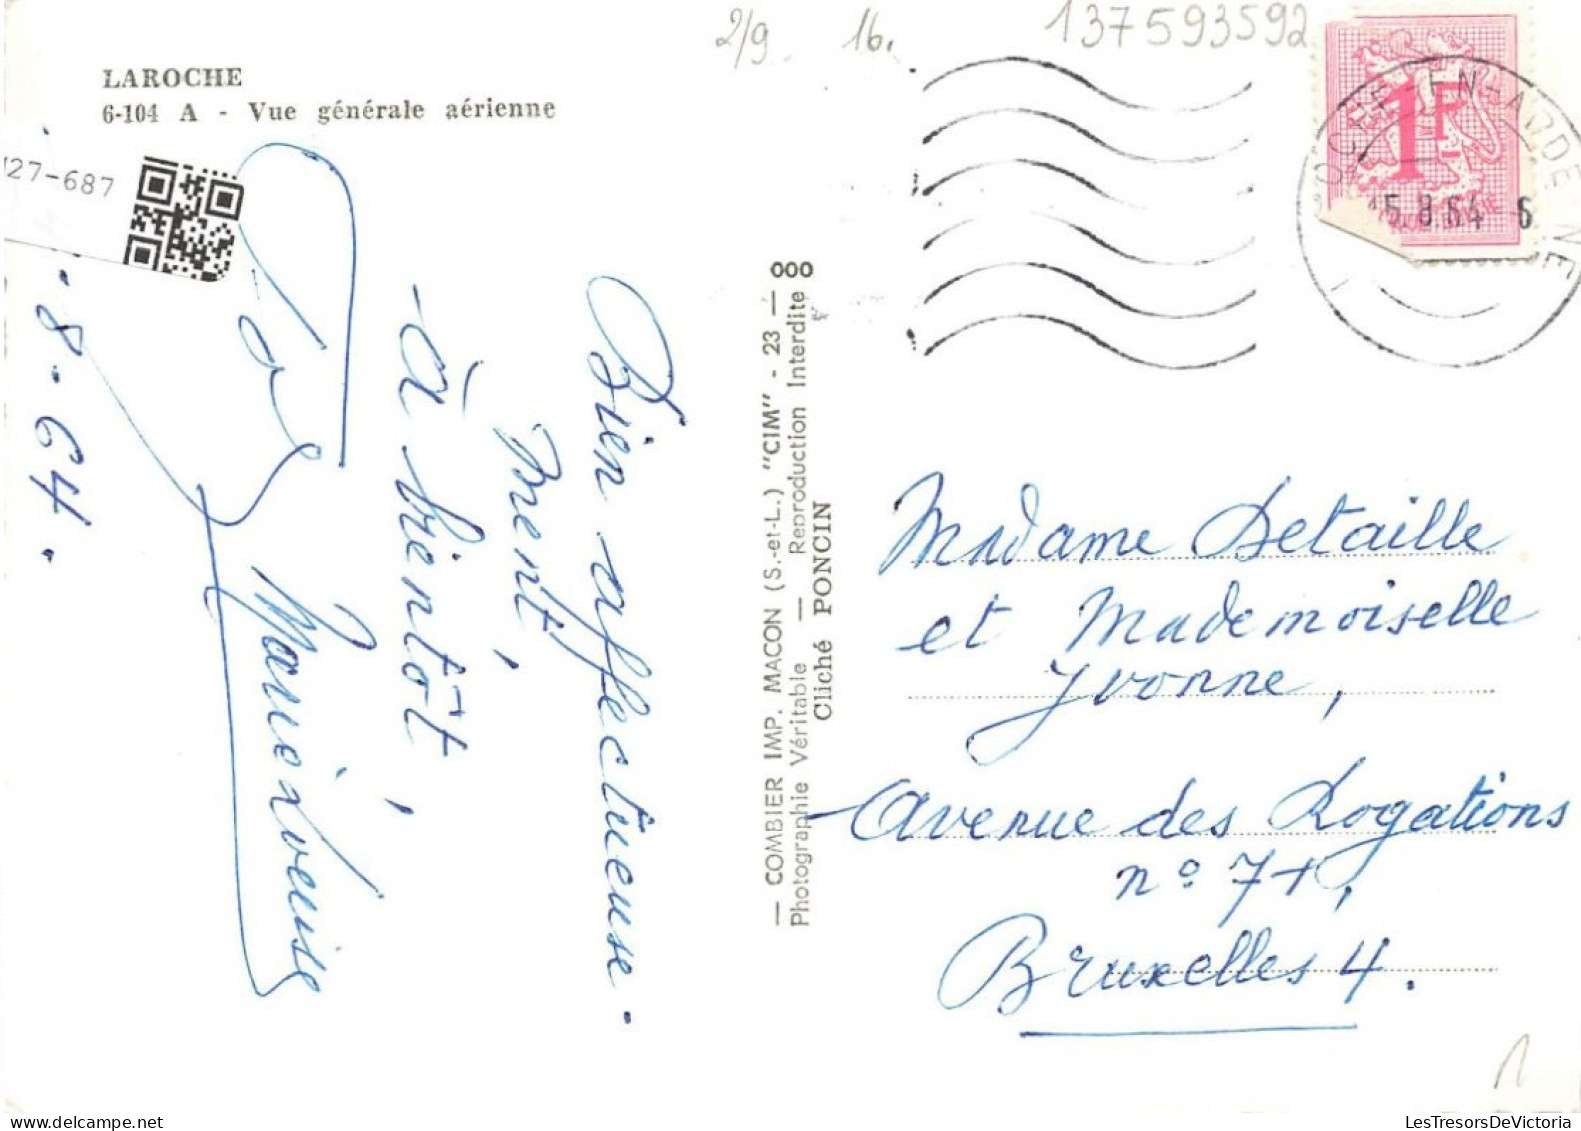 2/9 16. 137593592
LAROCHE
6-104 A - Vue générale aérienne
27-687
Bien affectueuse-
ment,
à bientôt,
Marie Louise
-8-64.
1F
5.8.64 6
— COMBIER IMP. MACON (S.-et-L.) "CIM" - 23 — 000
Photographie Véritable — Reproduction Interdite
Cliché PONCIN
Madame Detaille
et Mademoiselle
Yvonne,
Avenue des Rogations
n° 71,
Bruxelles 4.
1
LesTresorsDeVictoria
www.delcampe.net